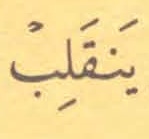 يَنقَلِبْ